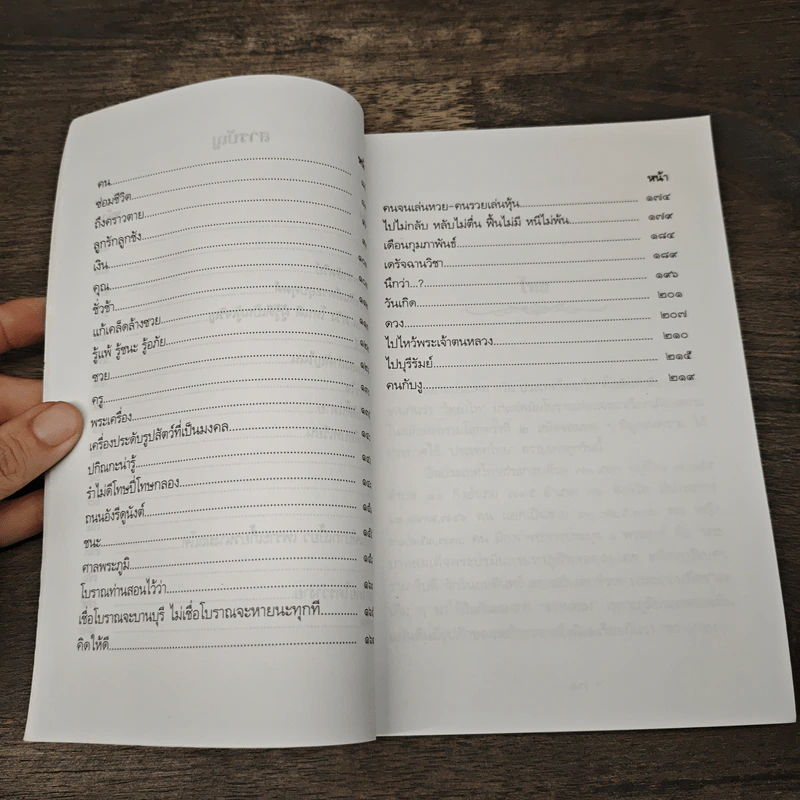 คน
ซ่อมชีวิต
ถึงคราวตาย
ลูกรักลูกชัง
เงิน
คุณ
ชั่วช้า
แก้เคล็ดล้างซวย
รู้แพ้ รู้ชนะ รู้อภัย
ซวย
ครู
พระเครื่อง
เครื่องประดับรูปสัตว์ที่เป็นมงคล
ปกิณกะน่ารู้
รำไม่ดีโทษปี่โทษกลอง
ถนนอังรีดูนังต์
ชนะ
ศาลพระภูมิ
โบราณท่านสอนไว้ว่า
เชื่อโบราณจะบานบุรี ไม่เชื่อโบราณจะหายนะทุกที
คิดให้ดี
หน้า
คนจนเล่นหวย-คนรวยเล่นหุ้น ๑๗๔
ไปไม่กลับ หลับไม่ตื่น ฟื้นไม่มี หนีไม่พ้น ๑๗๙
เดือนกุมภาพันธ์ ๑๘๔
เดรัจฉานวิชา ๑๘๙
นึกว่า...? ๑๙๖
วันเกิด ๒๐๑
ดวง ๒๐๗
ไปไหว้พระเจ้าตนหลวง ๒๑๐
ไปบุรีรัมย์ ๒๑๕
คนกับงู ๒๑๙